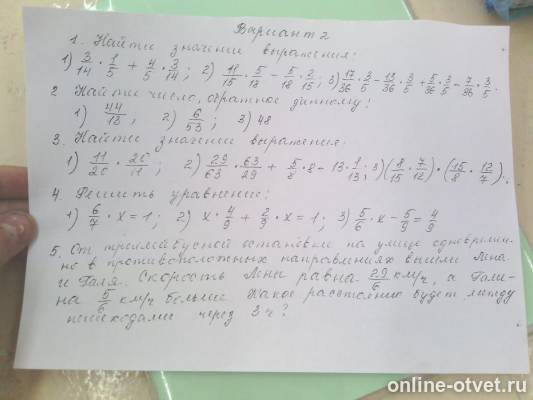 Вариант 2
1. Найти значение выражения:
1) 3/14 · 1/5 + 4/5 · 3/14; 2) 11/15 · 5/13 - 5/18 · 2/15; 3) 17/36 · 3/5 - 13/36 · 3/5 + 5/36 · 3/5 - 7/36 · 3/5.
2 Найти число, обратное данному:
1) 44/13, 2) 6/53; 3) 48
3. Найти значение выражения.
1) 11/26 · 26/11; 2) 29/63 · 63/29 + 5/8 · 8 - 13 · 1/13; 3) (8/15 · 7/12) · (15/8 · 12/7).
4. Решить уравнение:
1) 6/7 · x = 1; 2) x · 4/9 + 2/9 · x = 1; 3) 5/6 · x - 5/9 = 4/9
5. От троллейбусной остановки по улице одновремен-
но в противоположных направлениях вышли Инна
и Галя. Скорость Инны равна 29/6 км/ч, а Гали-
на 5/6 км/ч больше. Какое расстояние будет между
пешеходами через 3 ч?
online-otvet.ru